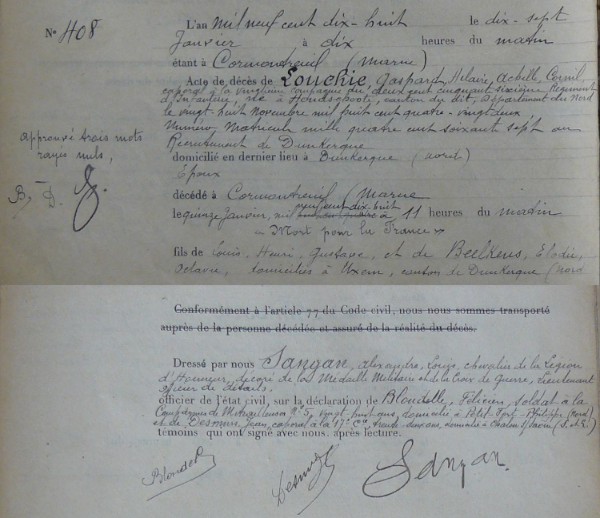 N° 408
L'an mil neuf cent dix-huit le dix-sept
Janvier à dix heures du matin
étant à Cormontreuil (Marne)
Acte de décès de Louchie, Gaspard, Hilaire, Achille, Cornil,
caporal à la vingtième Compagnie du deux cent cinquante sixième Régiment
d'Infanterie, né à Hondschoote, canton du dit, département du Nord
le vingt-huit Novembre mil huit cent quatre-vingt deux
Numéro Matricule mille quatre cent soixante sept au
Recrutement de Dunkerque
domicilié en dernier lieu à Dunkerque (nord)
Epoux
décédé à Cormontreuil (Marne
neuf cent dix-huit
le quinze Janvier, mil à 11 heures du matin
"Mort pour la France"
fils de Louis, Henri, Gustave, et de Elodie,
Octavie, domiciliés à Uxem, canton de Dunkerque (Nord
Approuvé trois mots
rayés nuls,
Conformément à l'article 77 du Code civil, nous nous sommes transporté
auprès de la personne décédée et assuré de la réalité du décès.
Dressé par nous Sangan, Alexandre, Louis, chevalier de la Légion
d'Honneur, décoré de la Médaille Militaire et de la Croix de Guerre, lieutenant
officier de détails,
officier de l'état civil, sur la déclaration de Blondelle, Félicien, soldat à la
Compagnie de Mitrailleuses n° 5, vingt huit ans, domicilié à Petit-Fort-Philippe (Nord)
et de Jean, caporal à la 17e Cie, trente-deux ans, domicilié à Chalon s/Saône (S. et L.)
témoins qui ont signé avec nous, après lecture.
Sangan